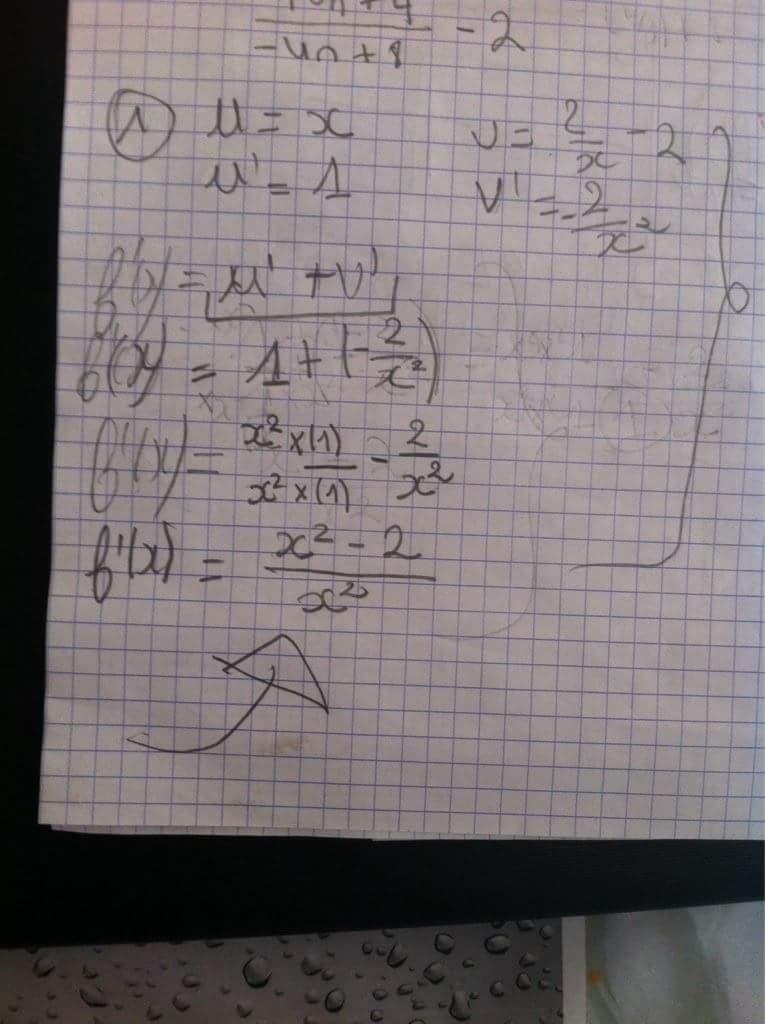 -4n+8 - 2
① u = x v = 2/x - 2
u' = 1 v' = -2/x²
f'(x) = u' + v'
f'(x) = 1 + (-2/x²)
f'(x) = x²×(1)/x²×(1) - 2/x²
f'(x) = x² - 2/x²